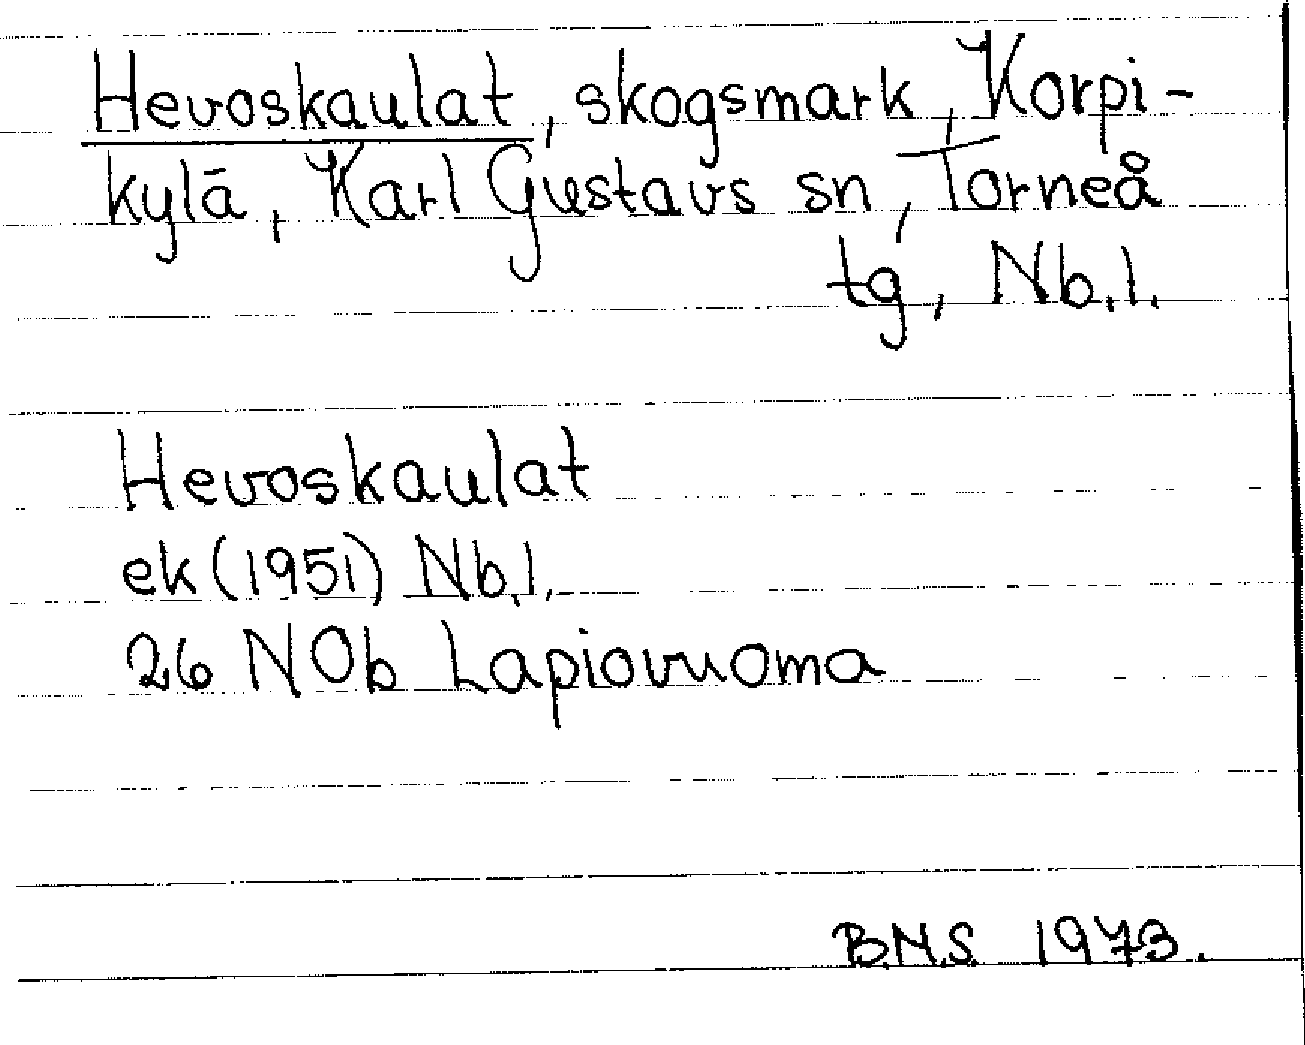 Hevoskaulat, skogsmark, Korpi-
kylä, Karl Gustavs sn, Torneå
tg, Nb.l.
Hevoskaulat
ek (1951) Nb.l.
26 NOb Lapiovuoma
B.N.S. 1973.